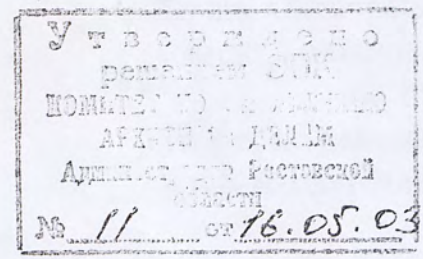 Утверждено
решением ЭПК
АРХИВНЫМ ДЕЛАМ
Администрации Ростовской
области
№ 11 от 16.05.03